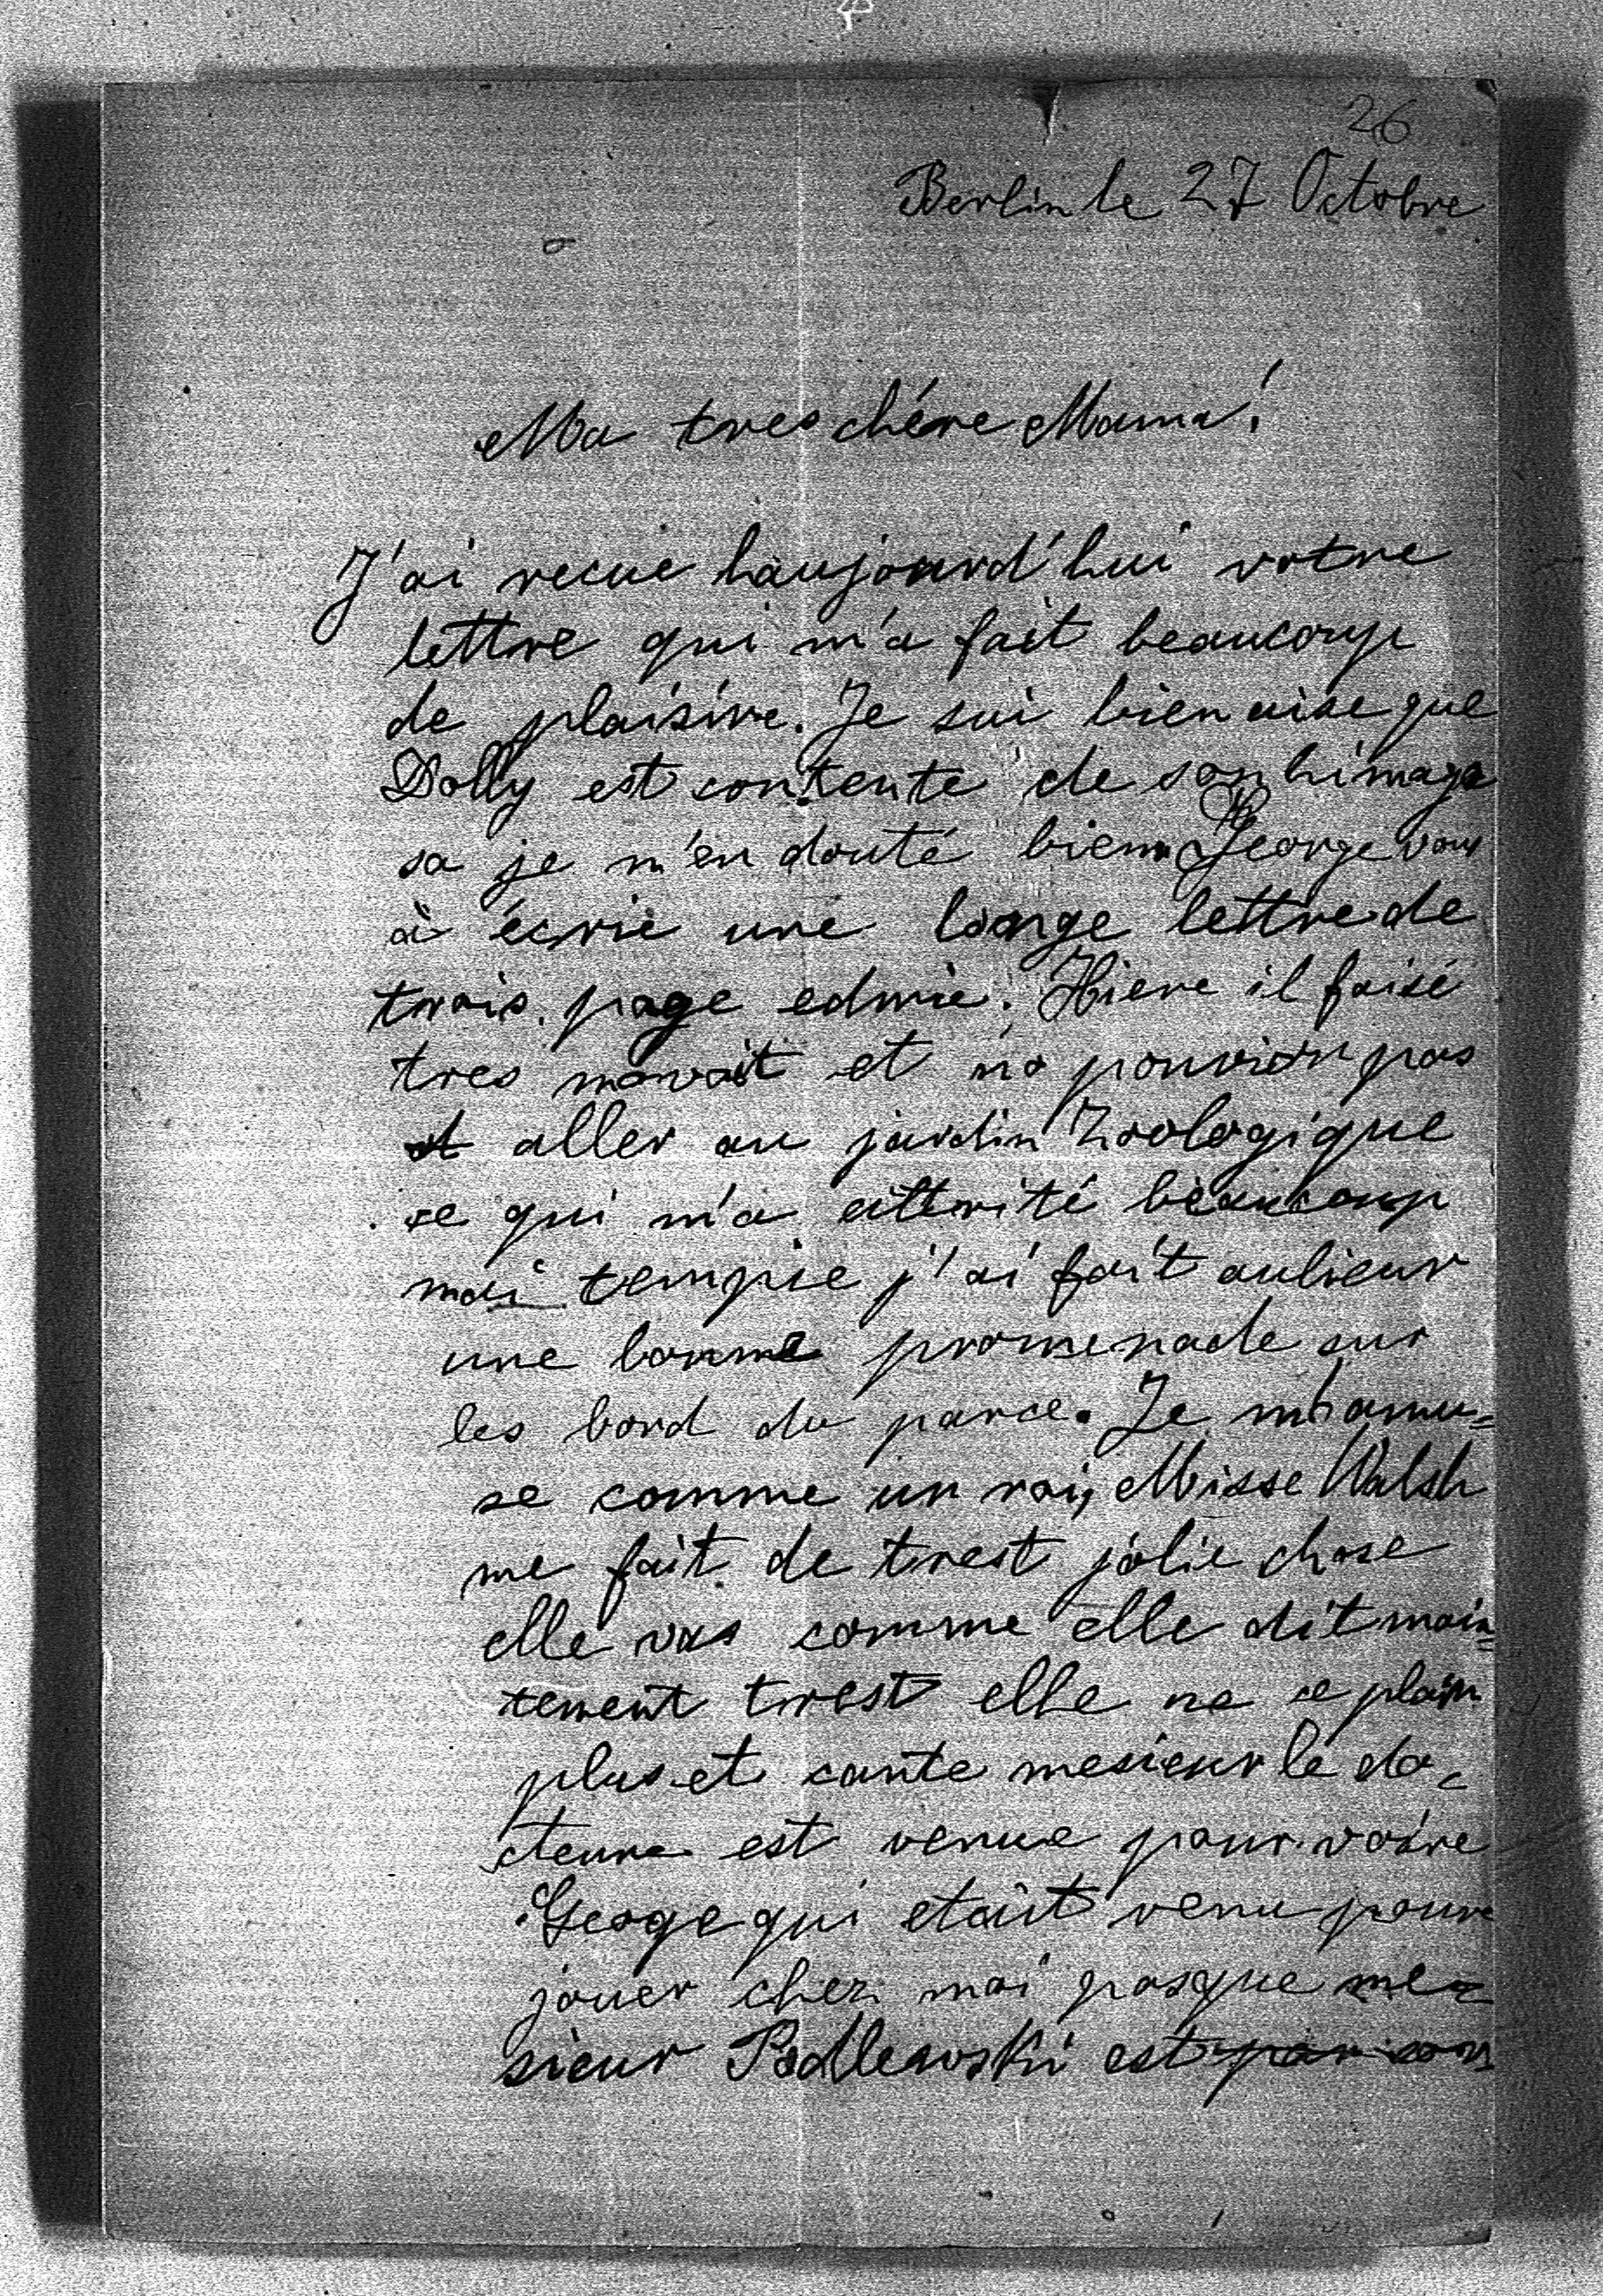 26
Berlin le 27 Octobre
Ma tres chére Mama!
J'ai recue haujourd'hui votre
lettre qui m'a fait beaucoup
de plaisire. Je sui bien aise que
Dolly est contente de son himage
sa je m'en douté bien George vous
à écrie une longe lettre de
trois page edmie. Hiere il faisé
tres movait et no pouvion pas
aller au jardin Zoologique
se qui m'a atterité beaucoup
moi tempie j'ai fait aulieur
une bonne promenade sur
les bord du parce. Je m'amu=
se comme un roi, Misse Walsh
me fait de trest jolie chose
elle vas comme elle dit main=
tenent trest elle ne se plain
plus et conte mesieur le do=
cteure est venue pour voire
Geoge qui etait venu poure
jouer chez moi pasque me=
sieur Podlewski est par con